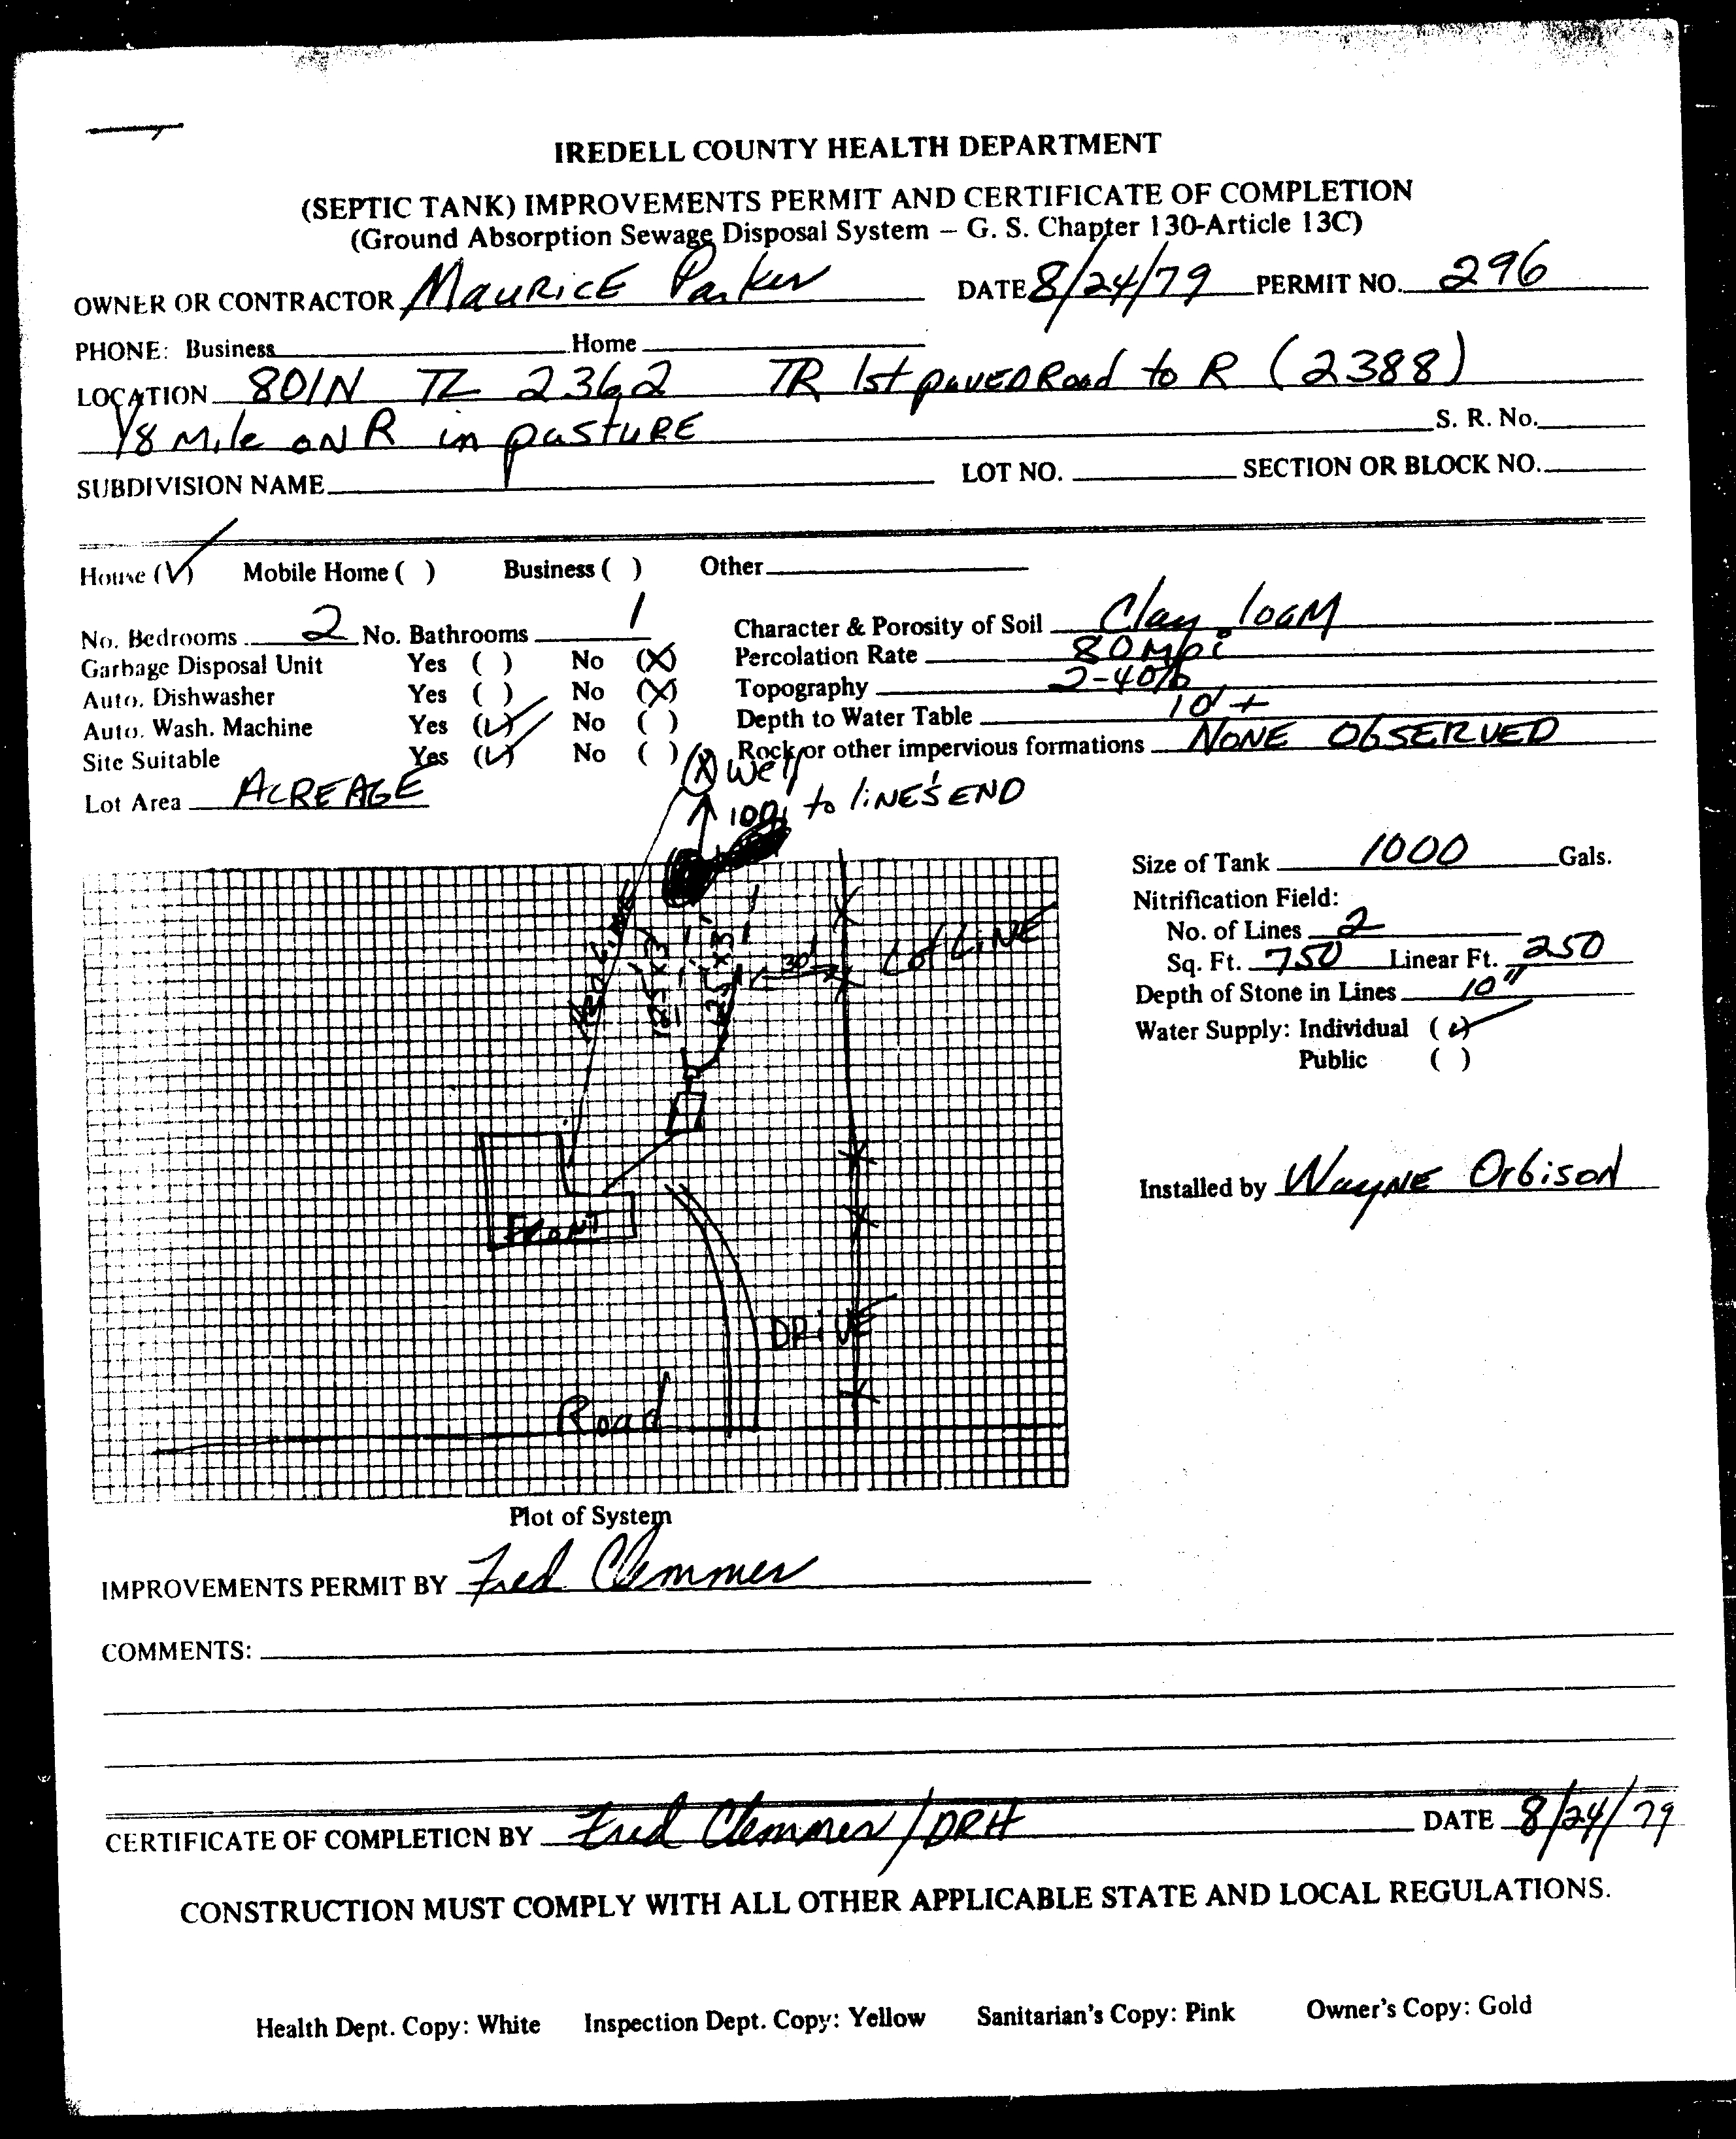 IREDELL COUNTY HEALTH DEPARTMENT
(SEPTIC TANK) IMPROVEMENTS PERMIT AND CERTIFICATE OF COMPLETION
(Ground Absorption Sewage Disposal System – G. S. Chapter 130-Article 13C)
OWNER OR CONTRACTOR MAURICE Parker DATE 8/24/79 PERMIT NO. 296
PHONE: Business Home
LOCATION 801N TL 2362 TR 1st pAVED Road to R (2388)
1/8 Mile ON R in pASTURE S. R. No.
SUBDIVISION NAME LOT NO. SECTION OR BLOCK NO.
House (✓) Mobile Home ( ) Business ( ) Other
No. Bedrooms 2 No. Bathrooms 1 Character & Porosity of Soil Clay loam
Garbage Disposal Unit Yes ( ) No (X) Percolation Rate 80 Mpi
Auto. Dishwasher Yes ( ) No (X) Topography 2-40%
Auto. Wash. Machine Yes (✓) No ( ) Depth to Water Table 10' +
Site Suitable Yes (✓) No ( ) Rock or other impervious formations NONE OBSERVED
Lot Area ACREAGE (X) Well
100' to liNE'S END
Size of Tank 1000 Gals.
Nitrification Field:
No. of Lines 2
Sq. Ft. 750 Linear Ft. 250
Depth of Stone in Lines 10"
Water Supply: Individual (✓)
Public ( )
125' x 3'
125' x 3'
30'
Lot LINE
Installed by WayNE Orbison
FRONT
DRiVE
Road
Plot of System
IMPROVEMENTS PERMIT BY Fred Clemmer
COMMENTS:
CERTIFICATE OF COMPLETION BY Fred Clemmer/DRH DATE 8/24/79
CONSTRUCTION MUST COMPLY WITH ALL OTHER APPLICABLE STATE AND LOCAL REGULATIONS.
Health Dept. Copy: White Inspection Dept. Copy: Yellow Sanitarian's Copy: Pink Owner's Copy: Gold